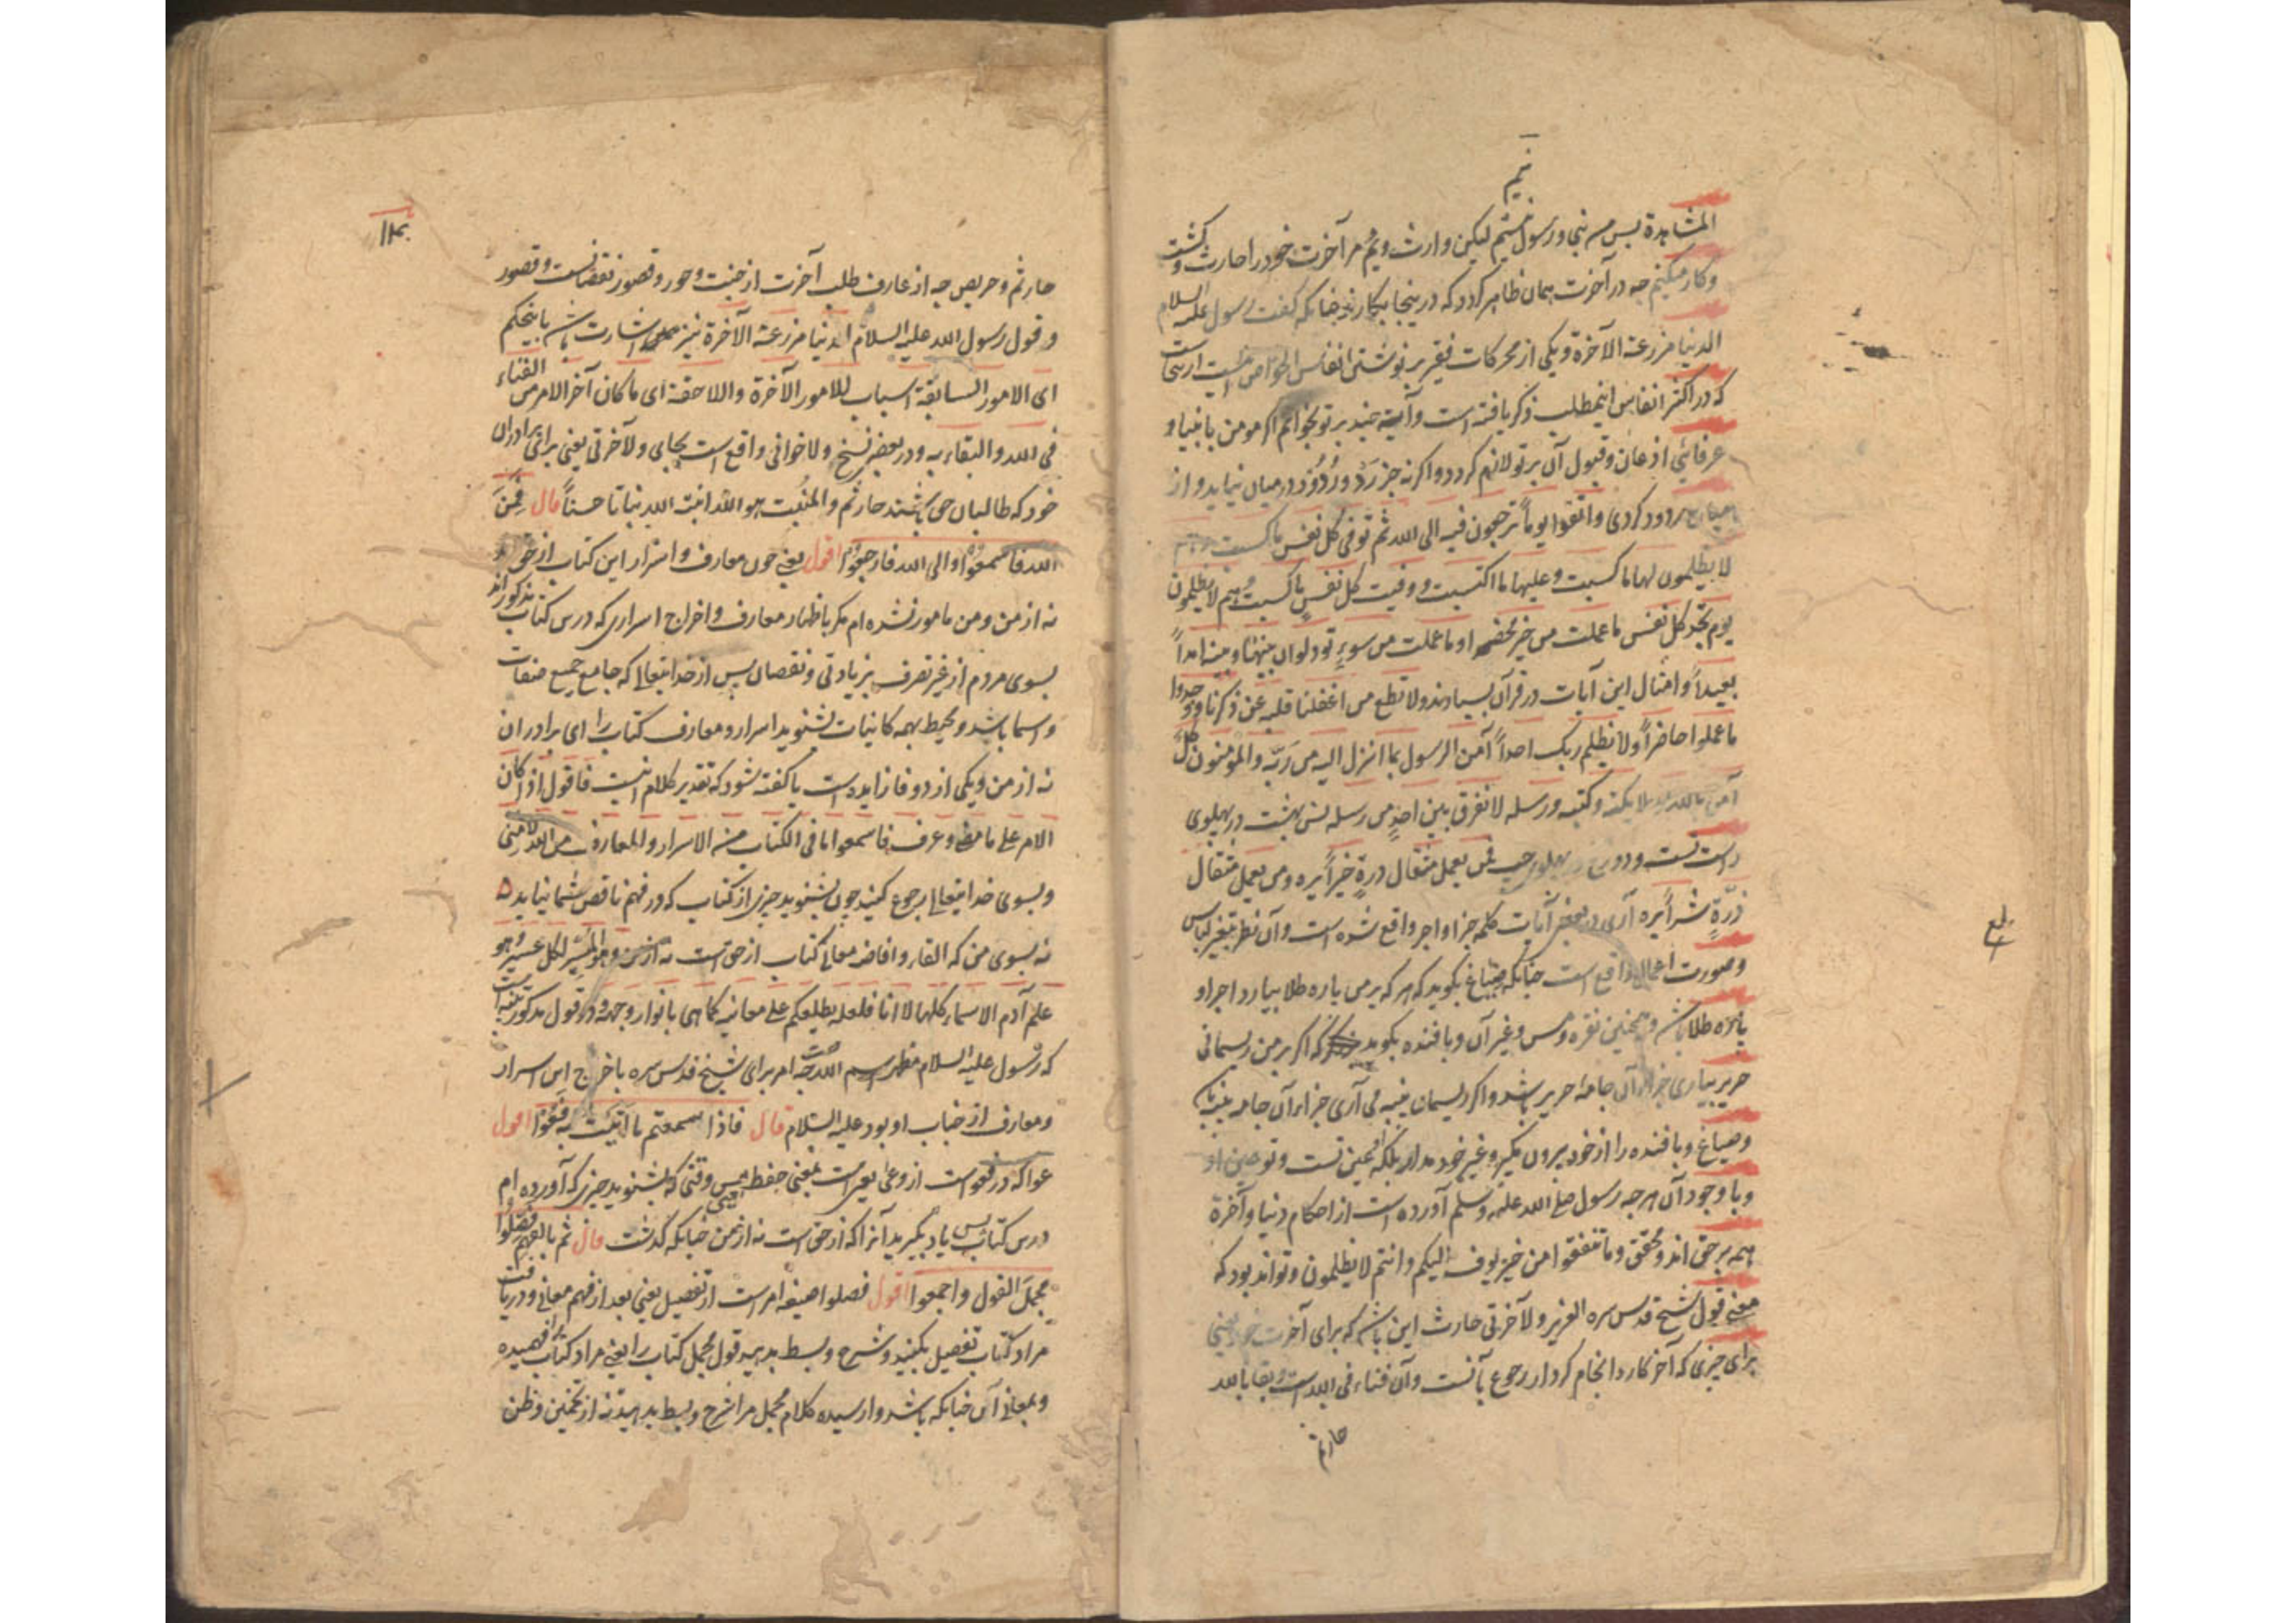 نیم
المشاهدة پس من نبی و رسول نیستم لیکن وارث ویم مر آخرت خود را حارث و کشت
وکار میکنم چه در آخرت همان ظاهر کردد که در ینجا بکارند چنانکه کفت رسول علیه السلام
الدنیا مزرعة الآخرة و یکی از محرکات فقیر بر نوشتن انفاس الخواص است
که در اکثر انفاس اینمطلب ذکر یافته است و آیة چند بر تو بخوانم اکر مومن بانبیا و
عرفائی اذعان و قبول آن بر تو لازم کردد و اکرنه جز رد و رد ود در میان نیاید و از
مردود کردی واتقوا یوماً ترجعون فیه الی الله ثم توفی کل نفس ما کسبت وهم
لا یظلمون لها ما کسبت وعلیها ما اکتسبت ووفیت کل نفس ما کسبت وهم لا یظلمون
یوم تجد کل نفس ما عملت من خیر محضراً وما عملت من سوءٍ تود لو ان بینها وبینه امداً
بعیداً و امثال این آیات در قرآن بسیارند ولا تطع من اغفلنا قلبه عن ذکرنا ووجدوا
ما عملوا حاضراً ولا یظلم ربک احداً آمن الرسول بما انزل الیه من ربّه والمؤمنون کلٌ
آمن بالله وملایکته وکتبه ورسله لا نفرق بین احدٍ من رسله پس بهشت در پهلوی
راست تست و دوزخ در پهلوی چپ فمن یعمل مثقال ذرةٍ خیراً یره ومن یعمل مثقال
ذرّةٍ شراً یره آری در بعض آیات کلمه جزا و اجر واقع شده است و آن نظر بتغیر لباس
وصورت اعمال واقع است چنانکه صبّاغ بکوید که هر که بر من پاره طلا بیارد اجر او
پاره طلا باشد و همچنین نقره و مس و غیر آن و بافنده بکوید که اکر بر من ریسمانی
حریر بیاری جزاء آن جامه حریر باشد و اکر ریسمان پنبه می آری جزاء آن جامه پنبه
وصباغ و بافنده را از خود بیرون مکیر و غیر خود مدان بلکه او عین تست و تو عین او
و با وجود آن هر چه رسول صلی الله علیه وسلم آورده است از احکام دنیا و آخرة
همه بر حق اند و محقق وما تنفقوا من خیر یوف الیکم وانتم لا یظلمون و تواند بود که
معنی قول شیخ قدس سره العزیز ولآخرتی حارث این باشد که برای آخرت خود یعنی
برای چیزی که آخر کار و انجام کردار رجوع بآنست و آن فناء فی الله است و بقا بالله
حارثم
حارثم و حریص چه از عارف طلب آخرت از جنت و حور و قصور نقصانست و قصور
و قول رسول الله علیه السلام الدنیا مزرعة الآخرة نیز اشارت باشد باینحکم
ای الامور السابقة اسباب للامور الآخرة واللاحقة ای ما کان آخر الامر من الفناء
فی الله والبقاء به و در بعض نسخ ولاخوانی واقع است بجای ولآخرتی یعنی برای برادران
خود که طالبان حق باشند حارثم والمنبت هو الله انبت الله نباتا حسناً قال فمن
الله فاسمعوا والی الله فارجعوا اقول یعنی چون معارف و اسرار این کتاب از حق اند
نه از من و من مامور نشده ام مکر باظهار معارف و اخراج اسراری که درس کتاب مذکور اند
بسوی مردم از غیر تصرف بزیادتی و نقصان پس از خدا یتعالی که جامع جمیع صفات
و اسما باشد و محیط بهمه کاینات بشنوید اسرار و معارف کتاب را ای برادران
نه از من و یکی از دو فا زایده است یا کفته شود که تقدیر کلام اینست فاقول اذا کان
الامر علی ما مضی وعرف فاسمعوا ما فی الکتاب من الاسرار والمعارف من الله لا منی
و بسوی خدا یتعالی رجوع کنید چون بشنوید چیزی از کتاب که در فهم ناقص شما نیاید
نه بسوی من که القاء و افاضه معانی کتاب از حق است نه از من وهو المیسر لکل عسیر وهو
علم آدم الاسماء کلها لا انا فلعله یطلعکم علی معانیه کما هی بانوار وجهه و در قول مذکور تنبیه است
که رسول علیه السلام مظهر اسم الله است چه امر برای شیخ قدس سره باخراج این اسرار
و معارف از جناب او بود علیه السلام قال فاذا سمعتم ما اتیت به فعوا اقول
عوا که در فعوا است از وعی یعی است بمعنی حفظ یعنی پس وقتی که بشنوید چیزی که آورده ام
درس کتاب پس یاد بکیرید آنرا که از حق است نه از من چنانکه کذشت قال ثم بالفهم فصلوا
مجمل القول واجمعوا اقول فصلوا صیغه امر است از تفصیل یعنی بعد از فهم معانی و دریافت
مراد کتاب تفصیل بکنید و شرح و بسط بدهید قول مجمل کتاب را یعنی مراد کتاب را فهمیده
و بمعانی آن چنانکه باشد وارسیده کلام مجمل مرا شرح و بسط بدهید نه از تخمین و ظن